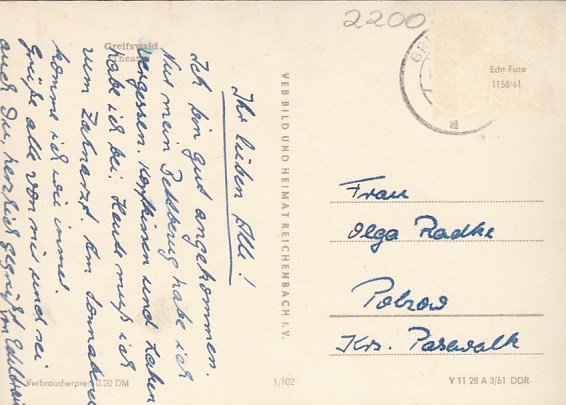 2200
Greifswald
Theater
Ihr lieben Alle!
Ich bin gut angekommen.
Nur mein Bettbezug habe ich
vergessen. Kopfkissen und Laken
habe ich bei. Heute muß ich
zum Zahnarzt. Am Sonnabend
komme ich wie immer.
Grüße alle von mir und sei
auch Du, herzlich gegrüßt
Verbraucherpreis 0,20 DM
VEB BILD UND HEIMAT REICHENBACH I. V.
1/302
Echt Foto
1158/61
Frau
Olga Radke
Polzow
Krs. Pasewalk
V 11 28 A 3/61 DDR